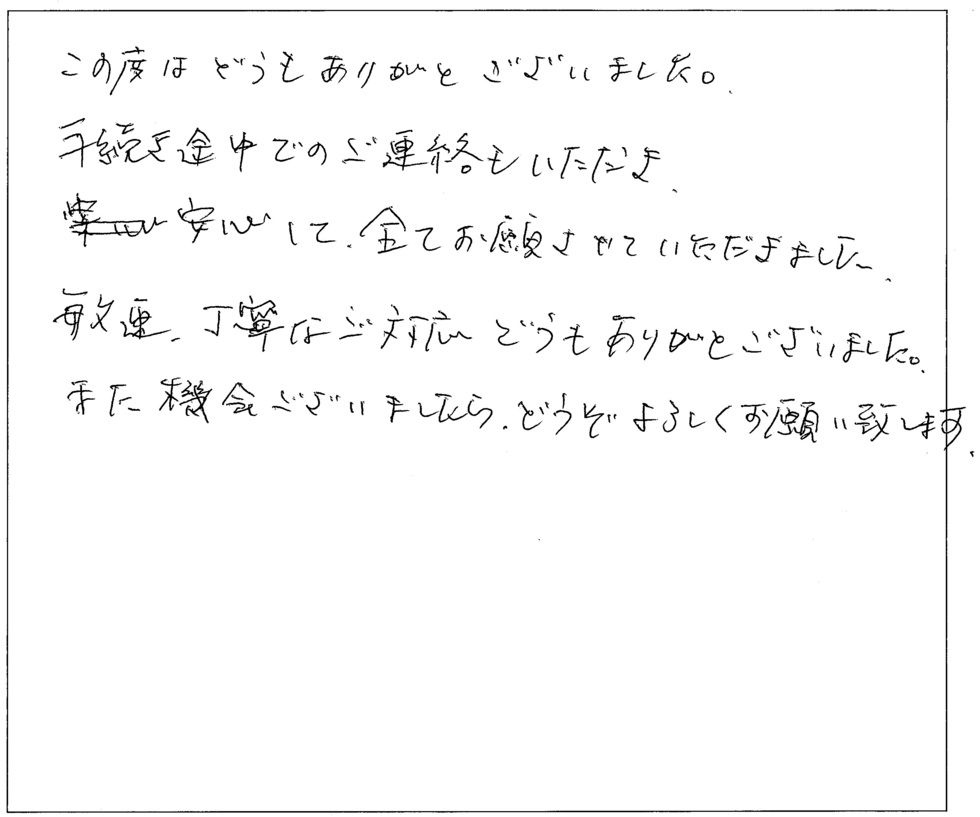 この度はどうもありがとございました。
手続き途中でのご連絡もいただき、
安心して、全てお願させていただきました。
敏速、丁寧なご対応どうもありがとございました。
また機会ございましたら、どうぞよろしくお願い致します。